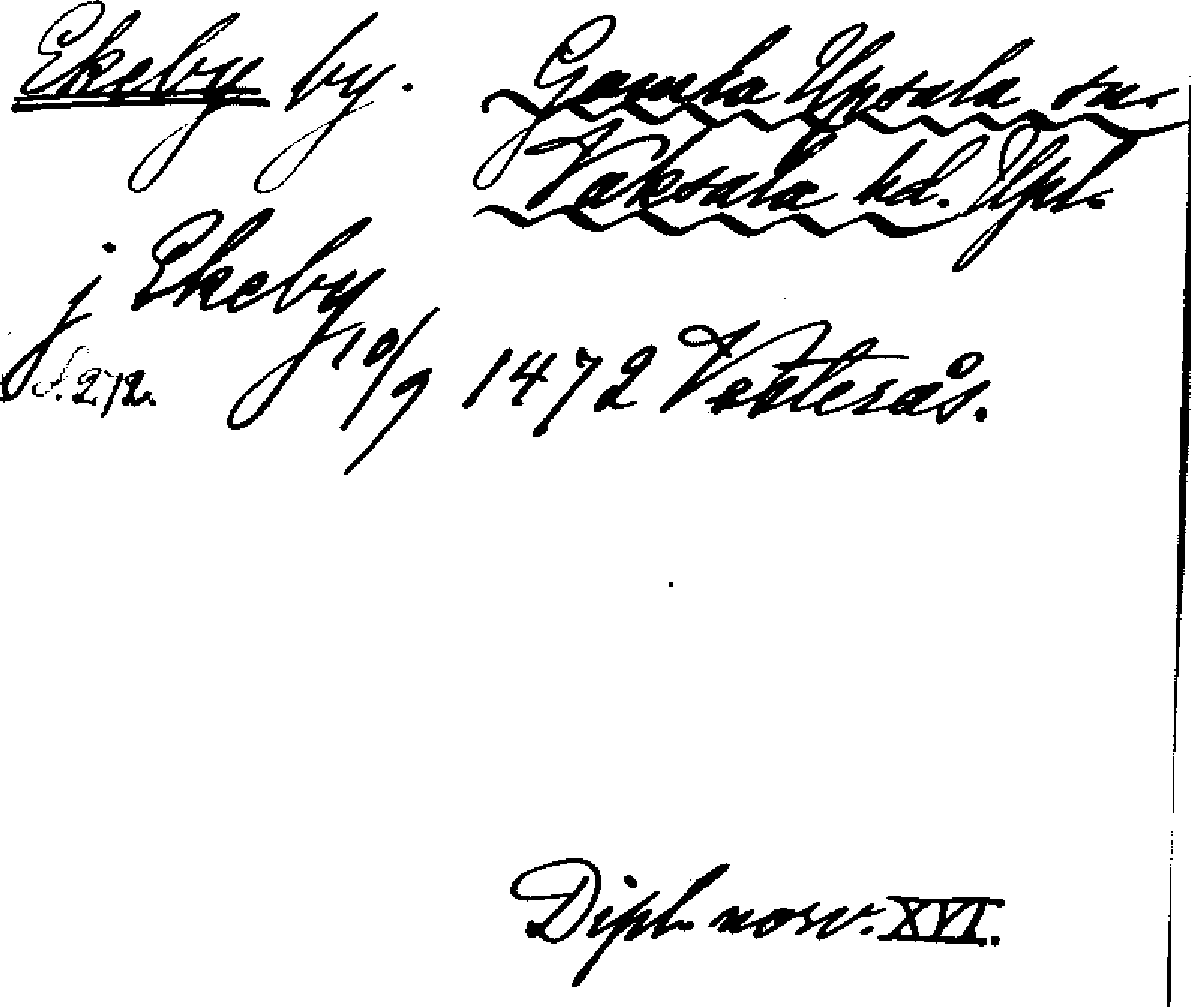 Ekeby by. Gamla Upsala sn.
Vaksala hd. Upl.
j Ekeby
S. 272. 10/9 1472 Vesterås.
Dipl. norv. XVI.